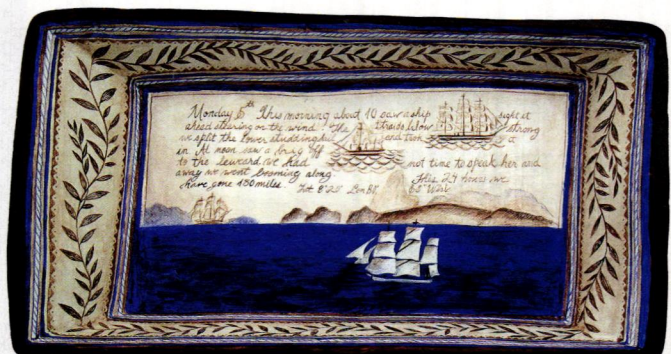 Monday 5th This morning about 10 saw a ship right at
ahead steering on the wind! The trades blow strong
we split the lower studdingsail and took it
in. At noon saw a brig off
to the leward we had not time to speak her and
away we went booming along This 24 hours we
have gone 180 miles Lat 8°20' Lon